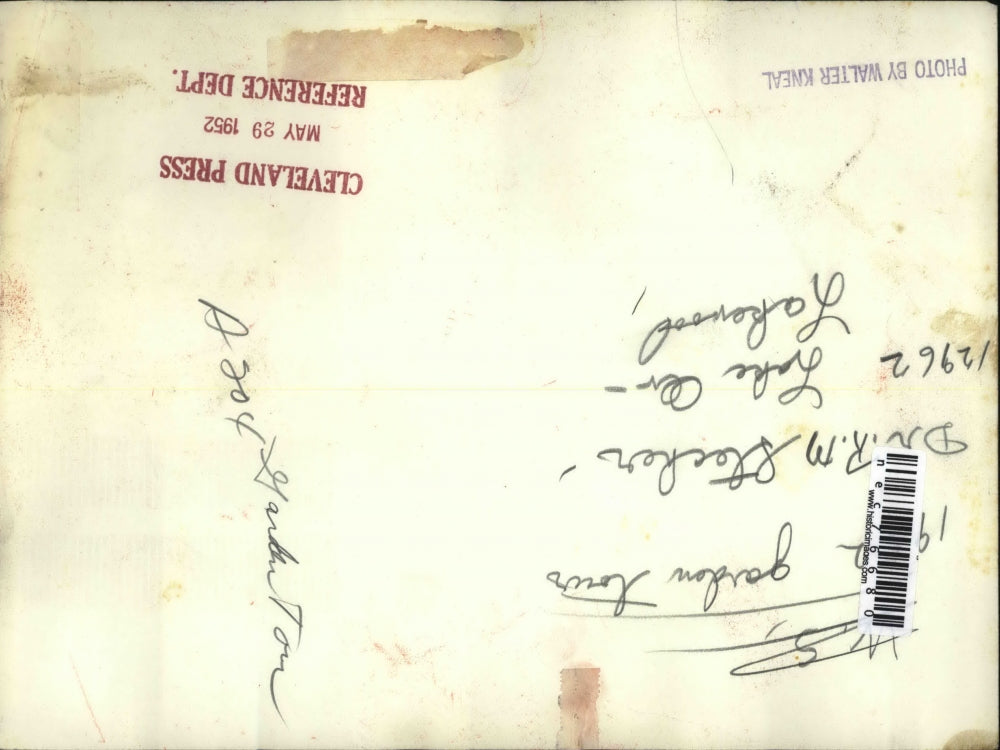 garden tours
Dr. R.M Stecher
12962 Lake Av-
Lakewood,
CLEVELAND PRESS
MAY 29 1952
REFERENCE DEPT.
PHOTO BY WALTER KNEAL
Garden Tour
www.historicimages.com
nec76680